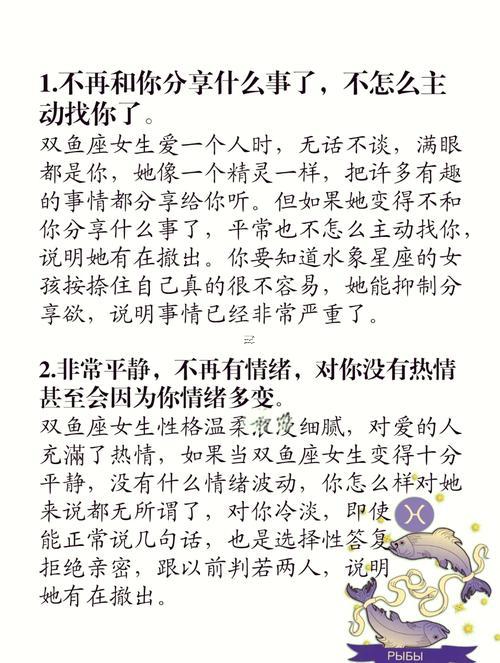 1.不再和你分享什么事了，不怎么主
动找你了。
双鱼座女生爱一个人时，无话不谈，满眼
都是你，她像一个精灵一样，把许多有趣
的事情都分享给你听。但如果她变得不和
你分享什么事了，平常也不怎么主动找你，
说明她有在撤出。你要知道水象星座的女
孩按捺住自己真的很不容易，她能抑制分
享欲，说明事情已经非常严重了。
2.非常平静，不再有情绪，对你没有热情
甚至会因为你情绪多变。
双鱼座女生性格温柔细腻，对爱的人
充满了热情，如果当双鱼座女生变得十分
平静，没有什么情绪波动，你怎么样对她
来说都无所谓了，对你冷淡，即使
能正常说几句话，也是选择性答复
拒绝亲密，跟以前判若两人，说明
她有在撤出。
РЫБЫ